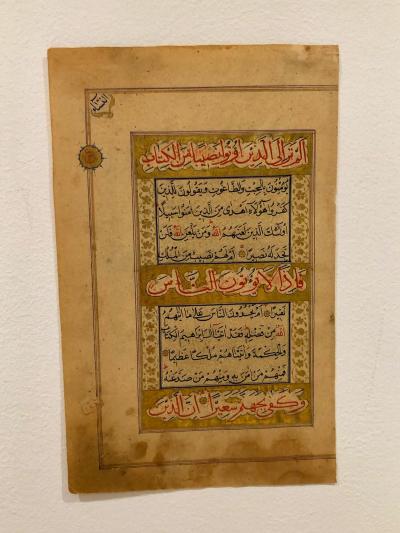 الم تر الى الذين اوتوا نصيبا من الكتاب
يؤمنون بالجبت والطاغوت ويقولون للذين
كفروا هؤلاء اهدى من الذين امنوا سبيلا
اولئك الذين لعنهم الله ومن يلعن الله فلن
تجد له نصيرا ام لهم نصيب من الملك
فاذا لا يؤتون الناس
نقيرا ام يحسدون الناس على ما اتيهم
الله من فضله فقد اتينا ال ابراهيم الكتاب
والحكمة واتيناهم ملكا عظيما
فمنهم من امن به ومنهم من صد عنه
وكفى بجهنم سعيرا ان الذين